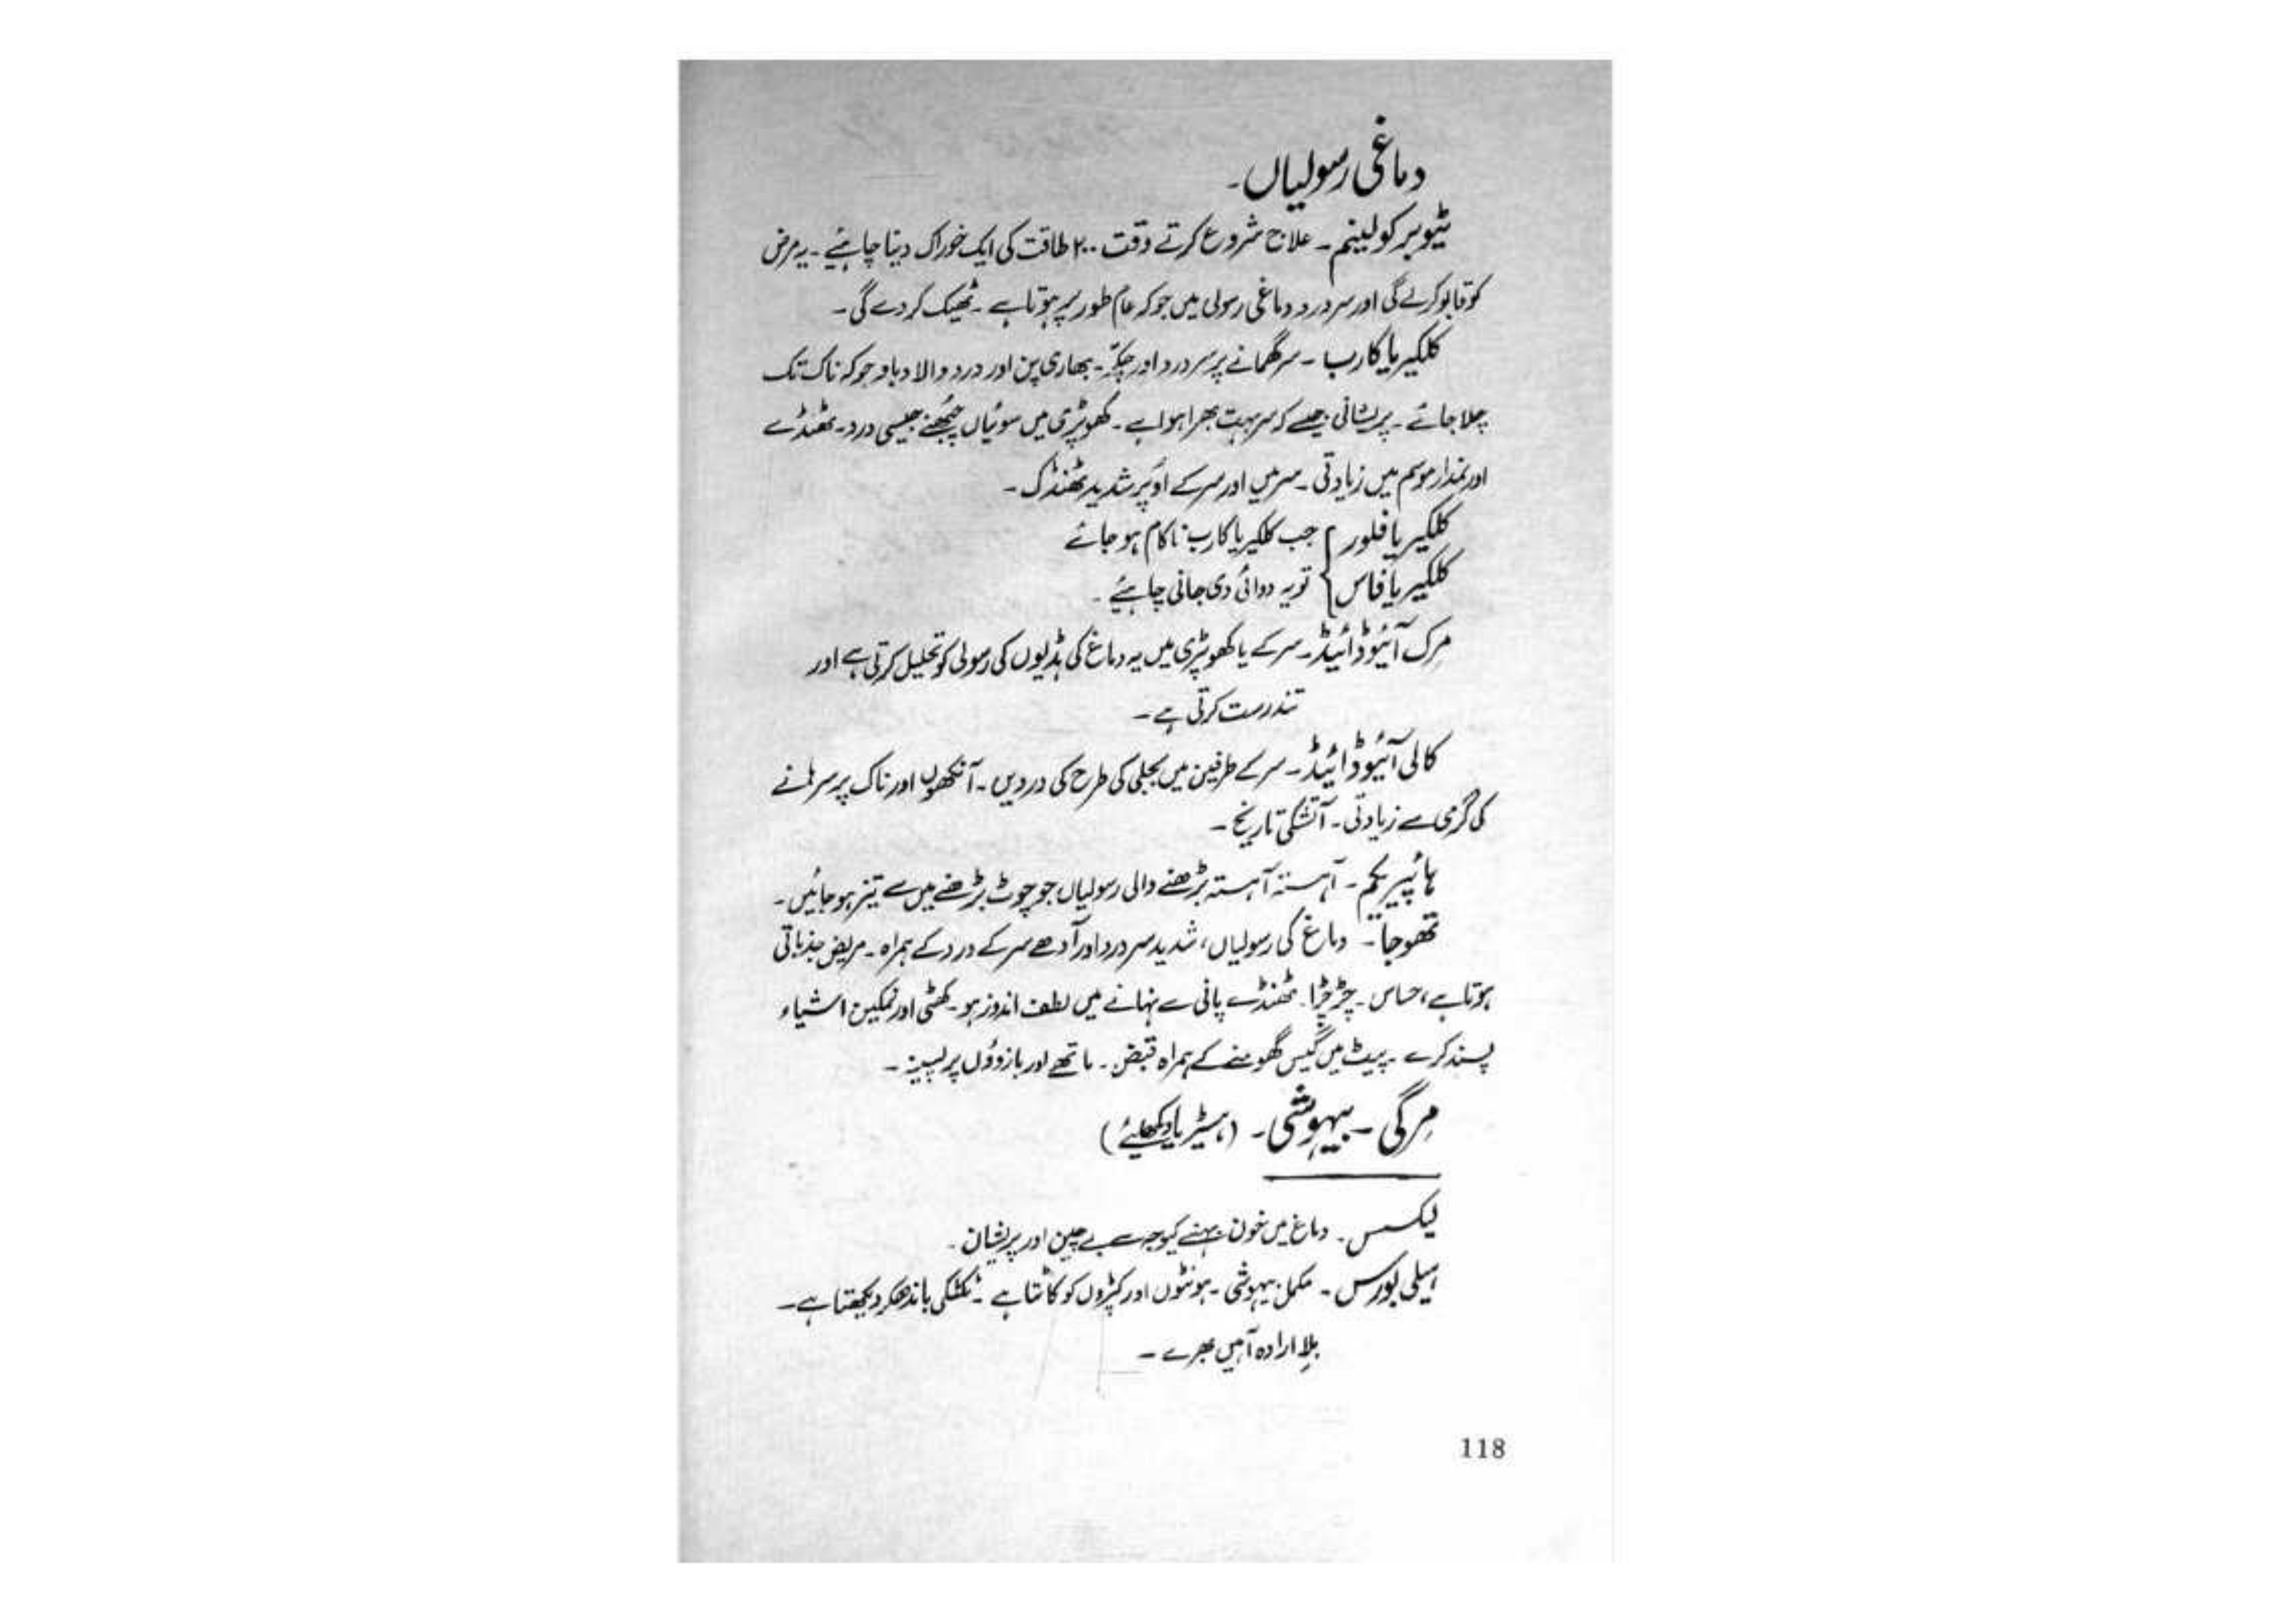 دماغی رسولیاں۔
ٹیوبرکولینم۔ علاج شروع کرتے وقت ۲۰۰ طاقت کی ایک خوراک دینا چاہئیے۔ یہ مرض
کو قابو کرلے گی اور سر درد دماغی رسولی میں جو کہ عام طور پر ہوتا ہے۔ ٹھیک کر دے گی۔
کلکیریا کارب۔ سر گھمانے پر سر درد اور چکّر۔ بھاری پن اور درد والا دباو جو کہ ناک تک
چلا جائے۔ پریشانی جیسے کہ سر بہت بھرا ہوا ہے۔ کھوپڑی میں سوئیاں چبھنے جیسی درد۔ ٹھنڈے
اور نمدار موسم میں زیادتی۔ سر میں اور سر کے اوپر شدید ٹھنڈک۔
کلکیریا فلور } جب کلکیریا کارب ناکام ہو جائے
کلکیریا فاس } تو یہ دوائی دی جانی چاہئیے۔
مرک آئیوڈائیڈ۔ سر کے یا کھوپڑی میں یہ دماغ کی ہڈیوں کی رسولی کو تحلیل کرتی ہے اور
تندرست کرتی ہے۔
کالی آئیوڈائیڈ۔ سر کے طرفین میں بجلی کی طرح کی دردیں۔ آنکھوں اور ناک پر سرہانے
کی گرمی سے زیادتی۔ آتشکی تاریخ۔
ہائپیریکم۔ آہستہ آہستہ بڑھنے والی رسولیاں جو چوٹ بڑھنے میں سے تیز ہو جائیں۔
تھوجا۔ دماغ کی رسولیاں، شدید سر درد اور آدھے سر کے درد کے ہمراہ۔ مریض جذباتی
ہوتا ہے، حساس۔ چڑچڑا۔ ٹھنڈے پانی سے نہانے میں لطف اندوز ہو۔ کھٹی اور نمکین اشیاء
پسند کرے۔ پیٹ میں گیس گھومنے کے ہمراہ قبض۔ ماتھے اور بازوؤں پر پسینہ۔
مِرگی۔ بیہوشی۔ (ہسٹریا دیکھئیے)
لیکسس۔ دماغ میں خون بہنے کیوجہ سے بے چین اور پریشان۔
ہیلی بورس۔ مکمل بیہوشی۔ ہونٹوں اور کپڑوں کو کاٹتا ہے۔ ٹکٹکی باندھکر دیکھتا ہے۔
بلا ارادہ آہیں بھرے۔
118